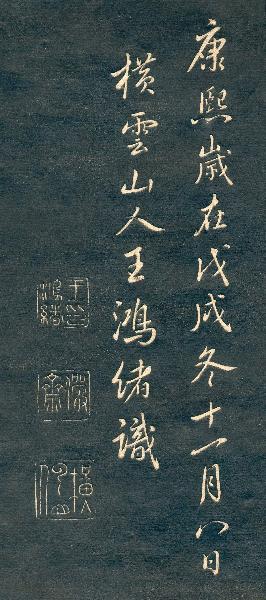 康熙歲在戊戌冬十一月八日
橫雲山人王鴻緒識